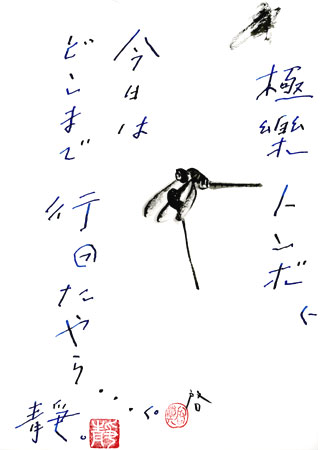 極樂トンボ
今日は
どこまで
行ったやら・・・
静。